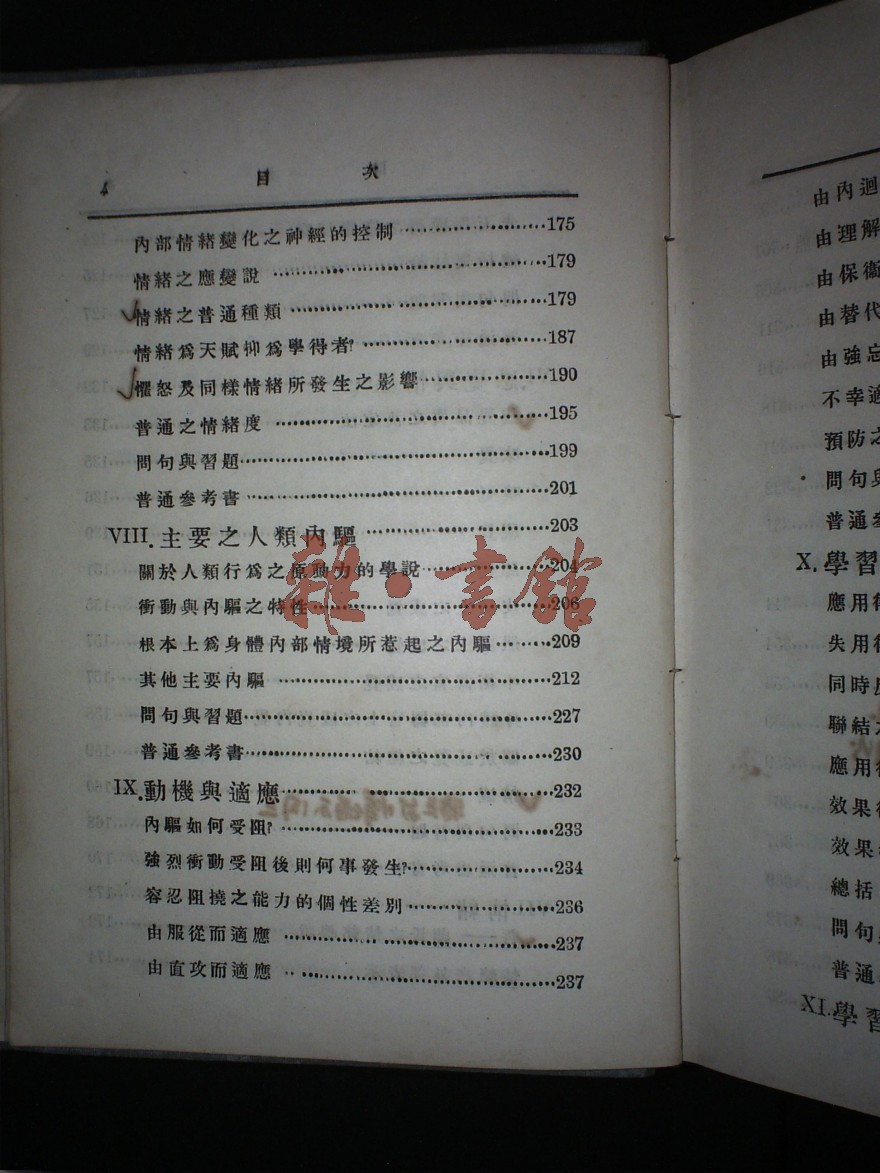 4 目 次
內部情緒變化之神經的控制 ……175
情緒之應變說 ……179
情緒之普通種類 ……179
情緒爲天賦抑爲學得者? ……187
懼怒及同樣情緒所發生之影響 ……190
普通之情緒度 ……195
問句與習題 ……199
普通參考書 ……201
VIII. 主要之人類內驅 ……203
關於人類行爲之原動力的學說 ……204
衝動與內驅之特性 ……206
根本上爲身體內部情境所惹起之內驅 ……209
其他主要內驅 ……212
問句與習題 ……227
普通參考書 ……230
IX. 動機與適應 ……232
內驅如何受阻? ……233
強烈衝動受阻後則何事發生? ……234
容忍阻撓之能力的個性差別 ……236
由服從而適應 ……237
由直攻而適應 ……237
雜·書館
由內迴
由理解
由保衞
由替代
由強忘
不幸適
預防之
問句與
普通參
X. 學習
應用律
失用律
同時
聯結
應用律
效果律
效果
總括
問句
普通
XI. 學習